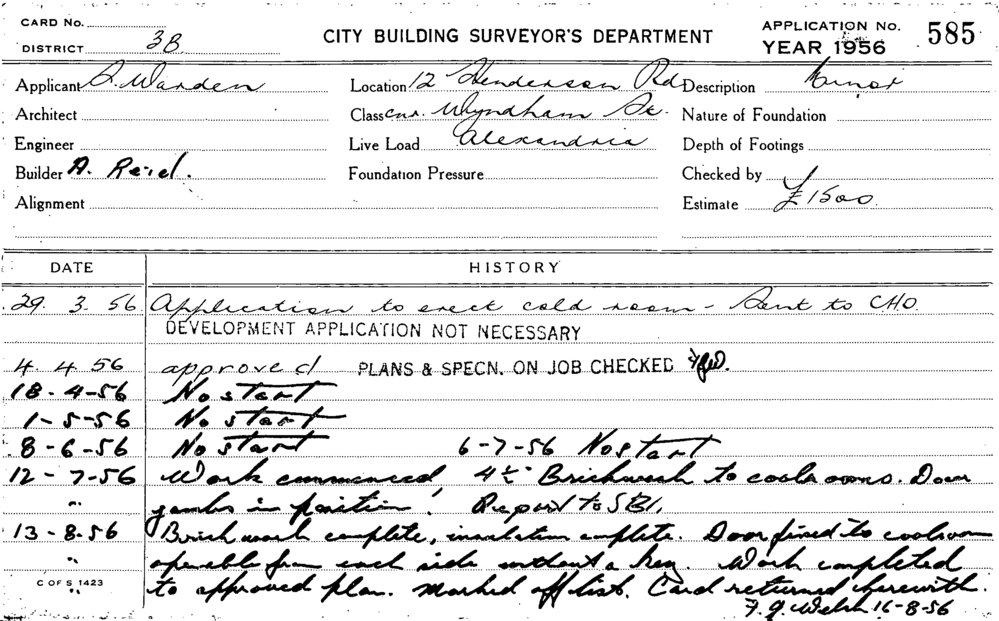 CARD No.
DISTRICT 3B
CITY BUILDING SURVEYOR'S DEPARTMENT
APPLICATION No. 585
YEAR 1956
Applicant A. Warden Location 12 Henderson Rd Description Minor
Architect Class cnr. Wyndham St. Nature of Foundation
Engineer Live Load Alexandria Depth of Footings
Builder A. Reid. Foundation Pressure Checked by
Alignment Estimate £1500
DATE HISTORY
29. 3. 56 Application to erect cold room - Sent to C.H.O.
DEVELOPMENT APPLICATION NOT NECESSARY
4. 4. 56 approved PLANS & SPECN. ON JOB CHECKED
18-4-56 No start
1-5-56 No start
8-6-56 No start 6-7-56 No start
12-7-56 Work commenced, 4½" Brickwork to coolrooms. Door
" jambs in position. Report to SBI.
13-8-56 Brickwork complete, insulation complete. Door fixed to coolroom
" openable from each side without a key. Work completed
C OF S 1423 " to approved plan. Marked off list. Card returned herewith.
F. J. Welsh 16-8-56